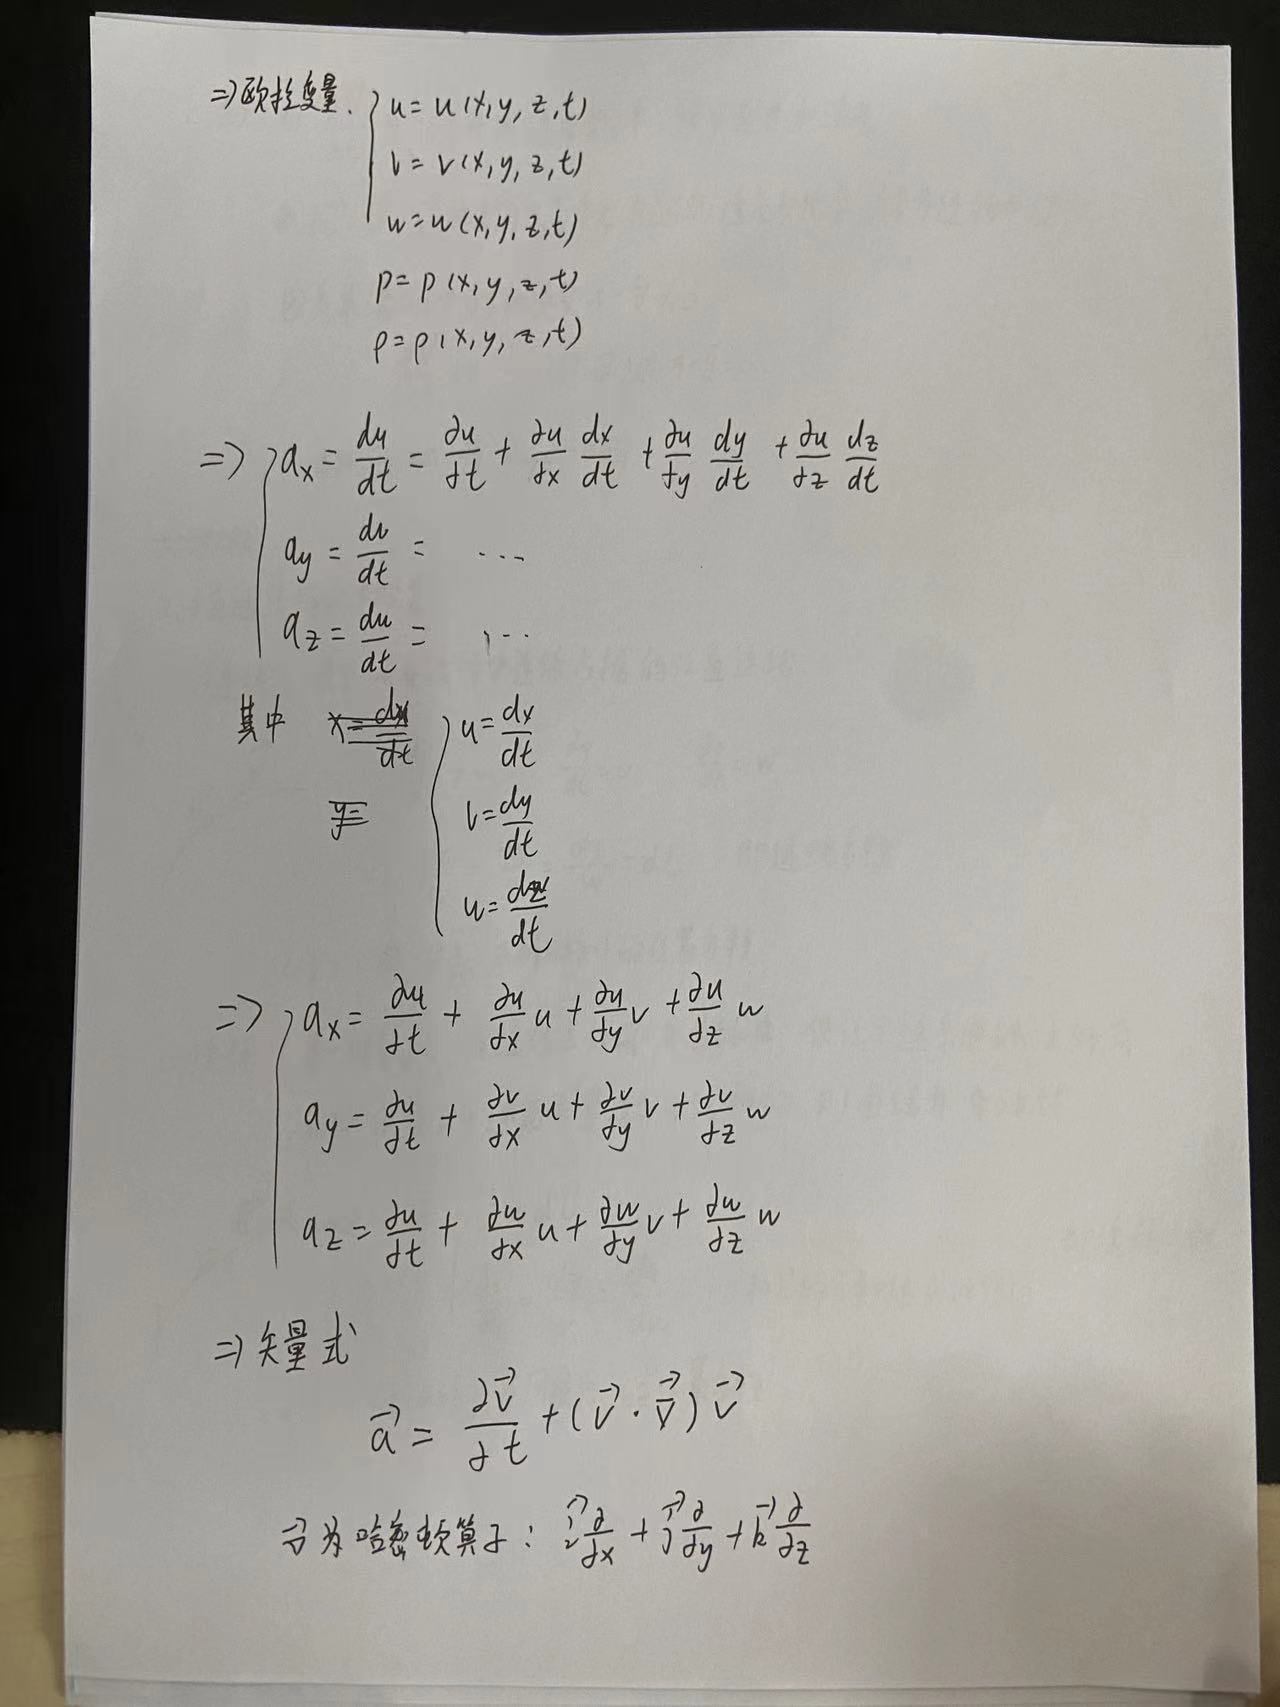 ⇒欧拉变量. { u = u(x,y,z,t)
v = v(x,y,z,t)
w = w(x,y,z,t)
p = p(x,y,z,t)
ρ = ρ(x,y,z,t)
⇒ { a_x = du/dt = ∂u/∂t + ∂u/∂x dx/dt + ∂u/∂y dy/dt + ∂u/∂z dz/dt
a_y = dv/dt = ...
a_z = du/dt = ...
其中 { u = dx/dt
v = dy/dt
w = dz/dt
⇒ { a_x = ∂u/∂t + ∂u/∂x u + ∂u/∂y v + ∂u/∂z w
a_y = ∂u/∂t + ∂v/∂x u + ∂v/∂y v + ∂v/∂z w
a_z = ∂u/∂t + ∂w/∂x u + ∂w/∂y v + ∂w/∂z w
⇒矢量式
a⃗ = ∂v⃗/∂t + (v⃗ · ∇⃗) v⃗
∇⃗为哈密顿算子: i⃗ ∂/∂x + j⃗ ∂/∂y + k⃗ ∂/∂z